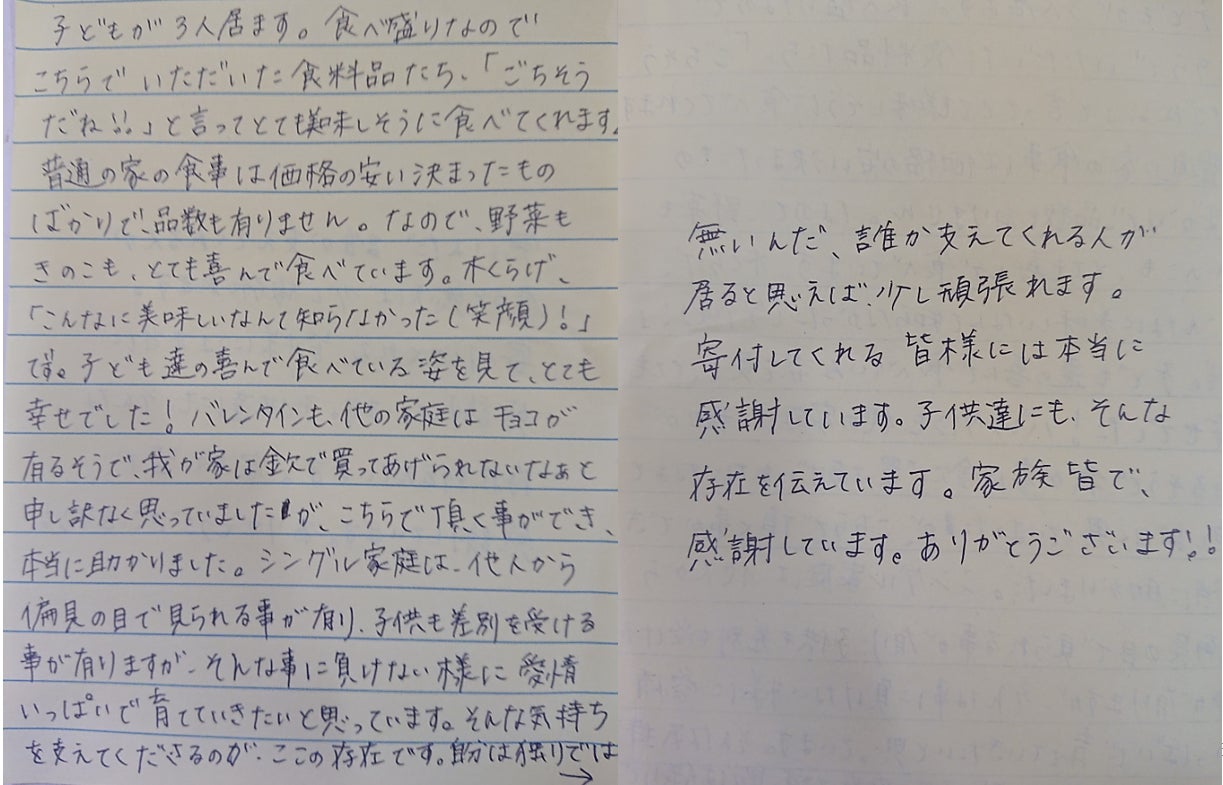 子どもが3人居ます。食べ盛りなので
こちらでいただいた食料品たち、「ごちそう
だね!!」と言ってとても美味しそうに食べてくれます。
普通の家の食事は価格の安い決まったもの
ばかりで、品数も有りません。なので、野菜も
きのこも、とても喜んで食べています。木くらげ、
「こんなに美味しいなんて知らなかった(笑顔)!」
です。子ども達の喜んで食べている姿を見て、とても
幸せでした!バレンタインも、他の家庭はチョコが
有るそうで、我が家は金欠で買ってあげられないなぁと
申し訳なく思っていましたが、こちらで頂く事ができ、
本当に助かりました。シングル家庭は、他人から
偏見の目で見られる事が有り、子供も差別を受ける
事が有りますが、そんな事に負けない様に愛情
いっぱいで育てていきたいと思っています。そんな気持ち
を支えてくださるのが、ここの存在です。自分は独りでは
→
無いんだ、誰か支えてくれる人が
居ると思えば、少し頑張れます。
寄付してくれる皆様には本当に
感謝しています。子供達にも、そんな
存在を伝えています。家族皆で、
感謝しています。ありがとうございます!!